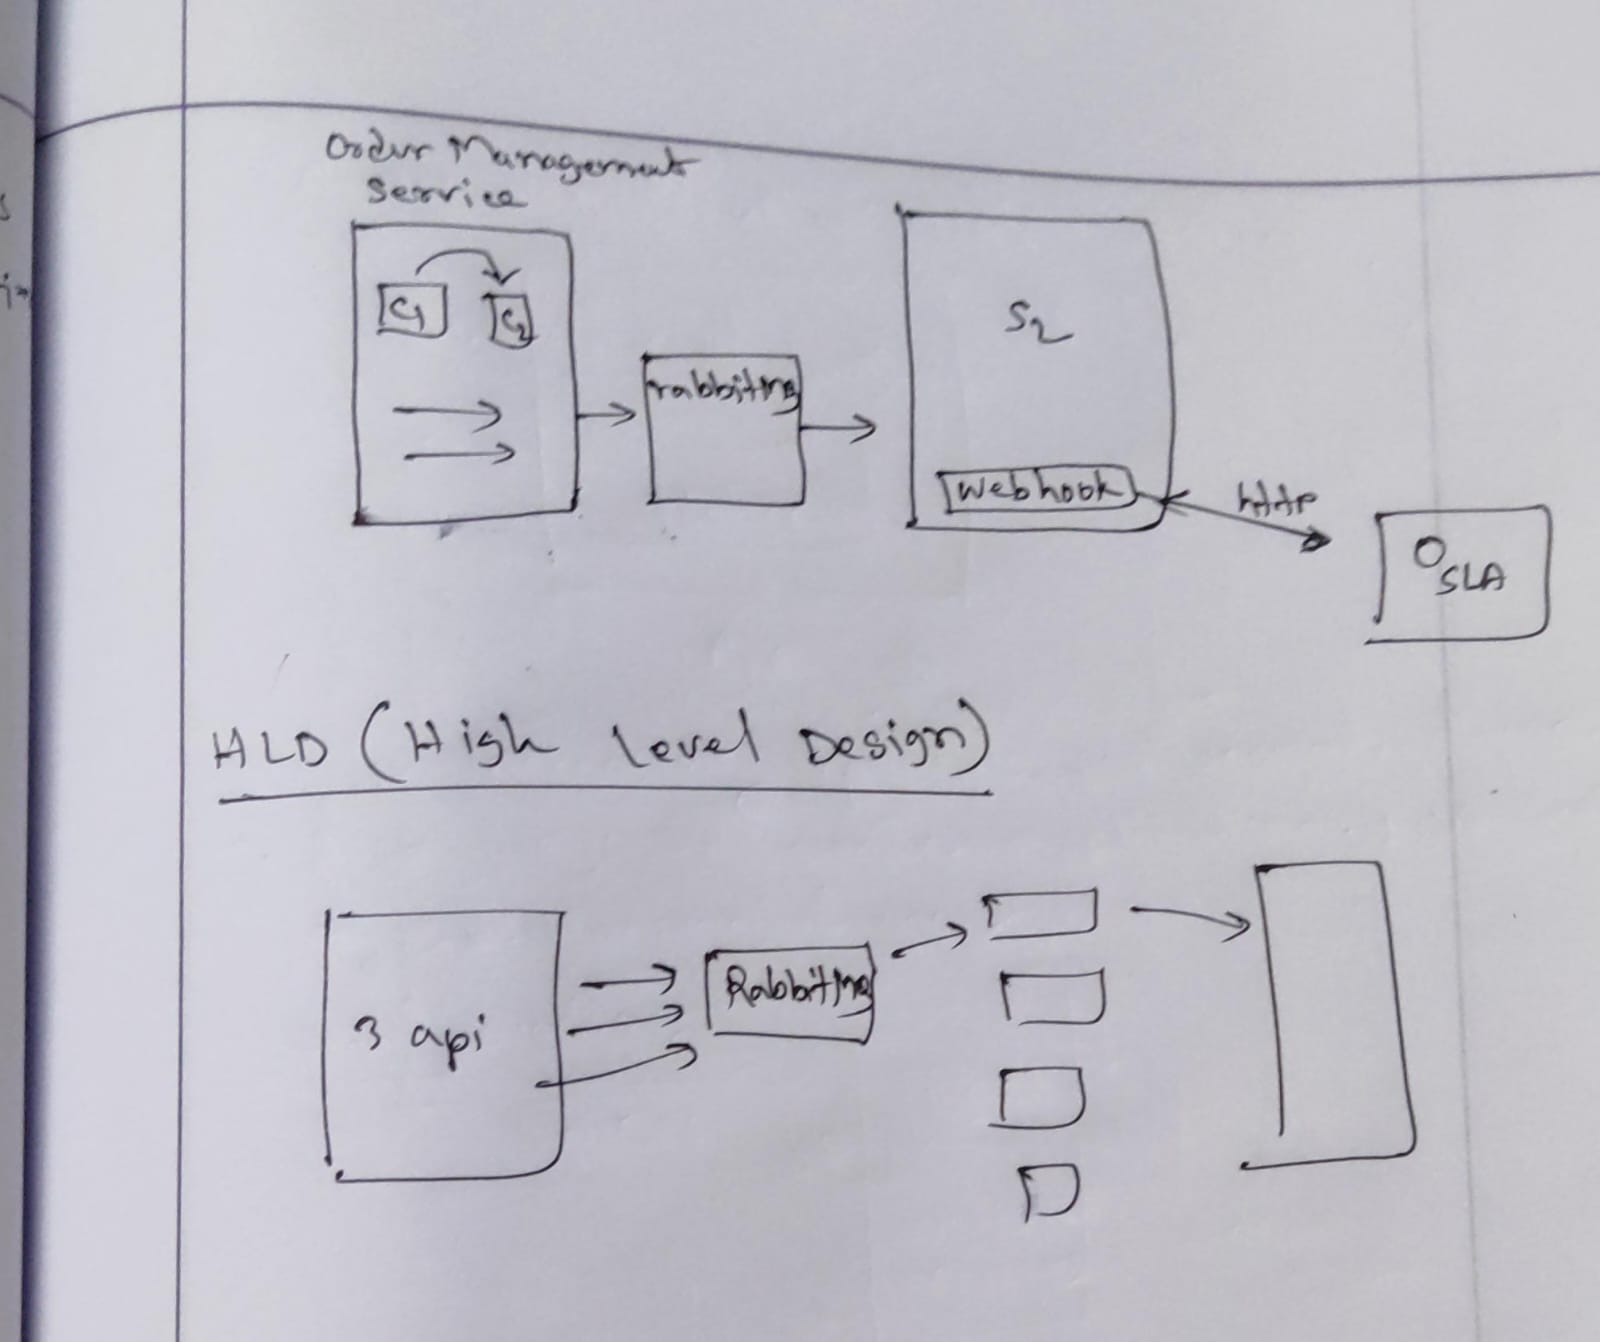 Order Management
Service
C1
C2
rabbitmq
S2
Webhook
http
O SLA
HLD (High level Design)
3 api
Rabbitmq